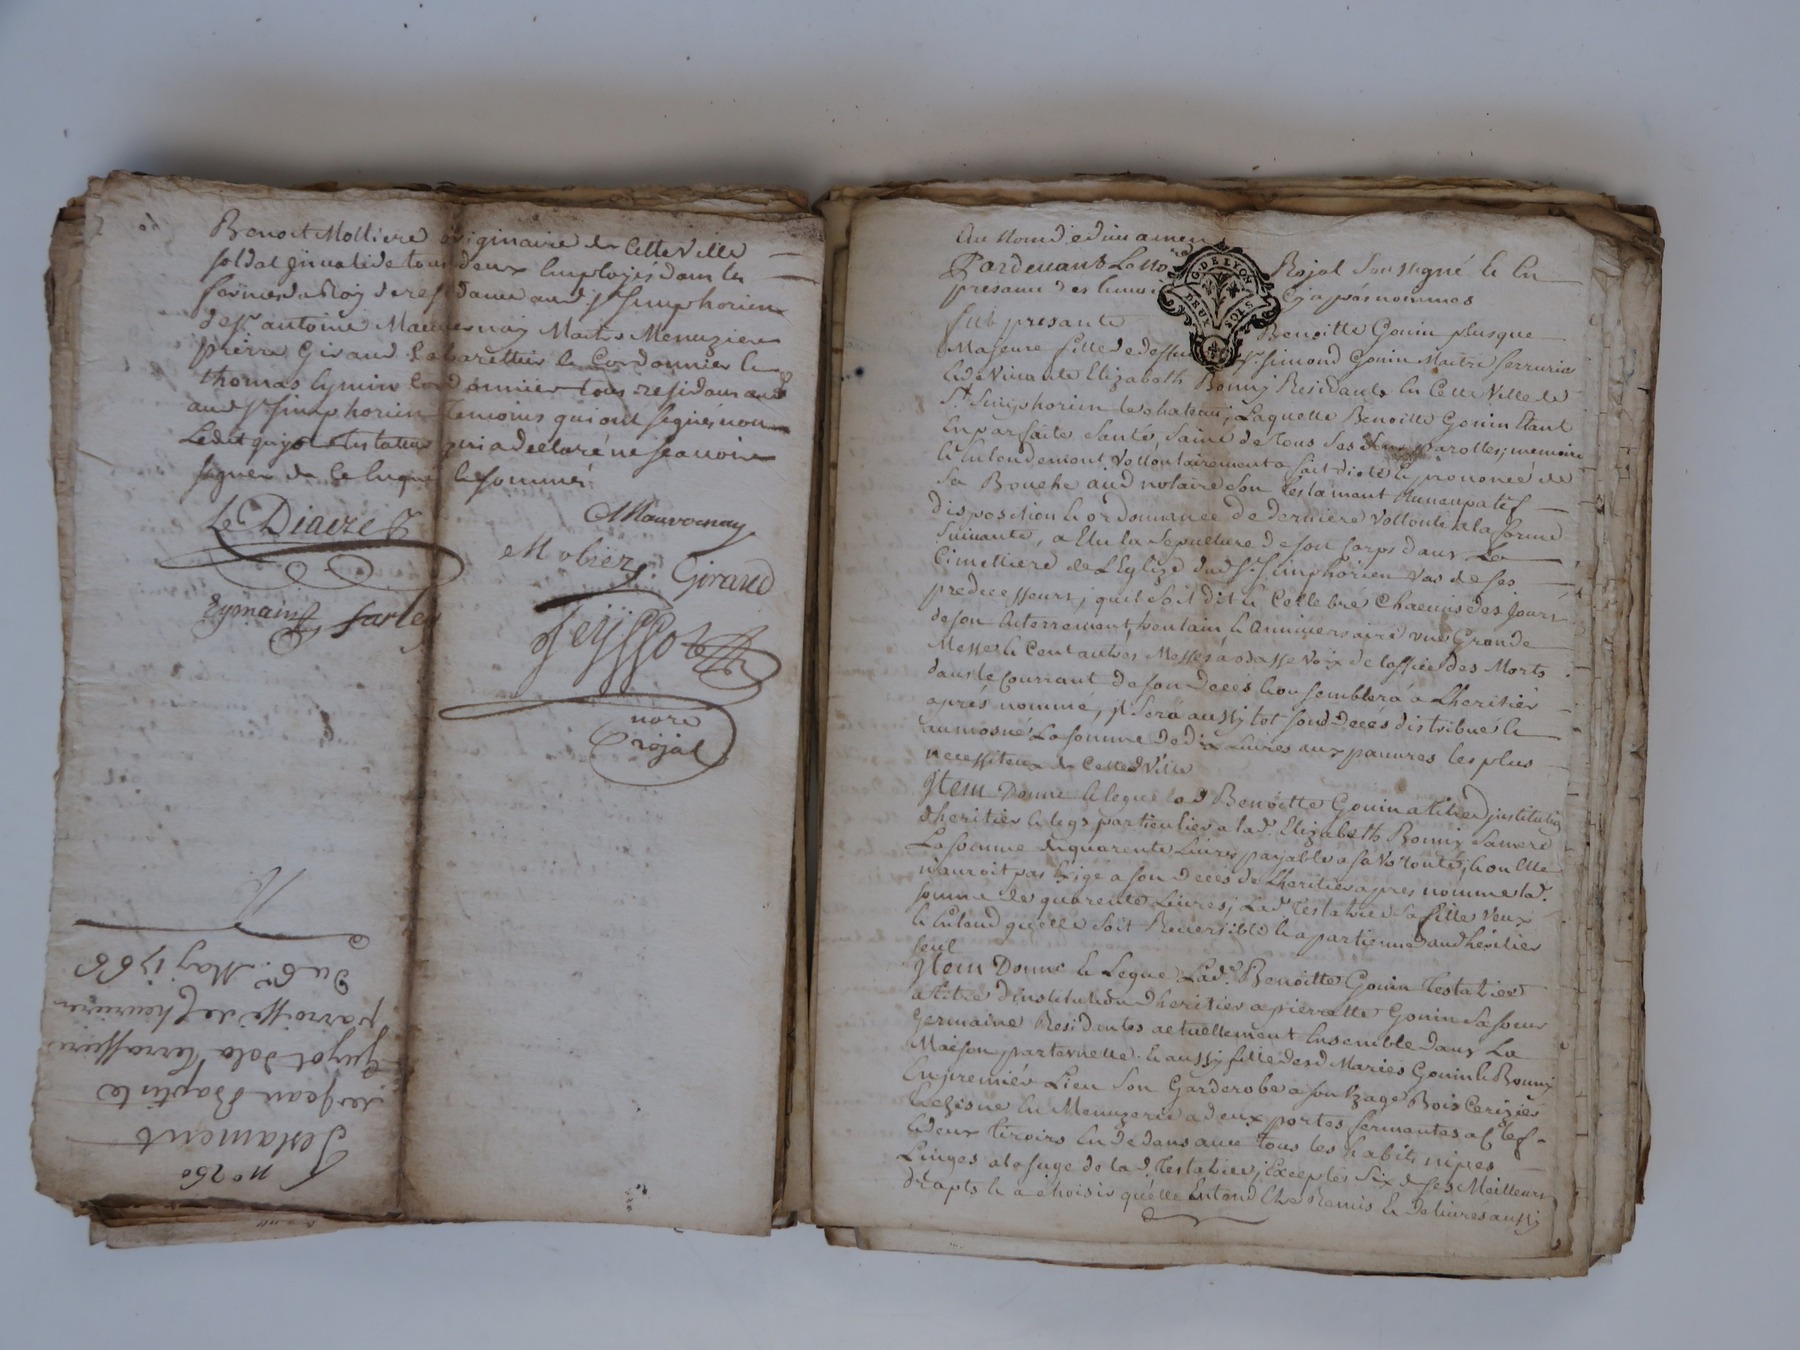 Benoit Mollière originaire de Cette Ville
soldat Invalide tous deux Employés dans les
fermes du Roy de residance aud. St. Simphorien
de sr. antoine Mauvernay Maitre Menuzier
pierre Giraud Cabarettier & Cordonnier &
thomas Eymin Cordonnier tous residans aud
aud St. Simphorien Temoins qui ont signés non
Ledit guyot testateur qui a declaré ne sçavoir
signer de Ce Enquis & sommé
Le Diaeze
Mauvernay
Mobier
Giraud
Eymain
farley
Teyssot
nore
rojal
nº 260
Testament
de Jean Baptiste
Guyot de la Terrassiere
parroisse de Cheurieres
Du 6e. May 1766
Au Nom de dieu amen
G. DE LYON
DEUX SOLS
Pardevant Le No Rojal Soussigné & En
presance des temoi Cy apprés nommés
fut presante Benoitte Gonin plusque
Majeure fille de deffu sr. Simond Gonin Maitre serrurier
& de Vivante Elizabeth Bonny Residante En Cette Ville de
St. Simphorien le chateau, Laquelle Benoitte Gonin Etant
En parfaite Santé, Saine de tous ses parolles, memoire
& Entendement Vollontairement a fait dicté & prononcé de
Sa Bouche aud notaire Son testament Nuncupatif
disposition & ordonnance de derniere Vollonté a la forme
Suivante, a Elu la Sepulture de son Corps dans Le
Cimettiere de L'Eglize dud St. Simphorien Vas de ses
predecesseurs, quil soit dit & Cellebré Chacuns des Jours
de son Enterrement, trentain & Anniversaire vne Grande
Messe & Cent autres Messes a Basse Voix de loffice des Morts
dans le Courrant de son Decés & ou semblera a L'heritier
aprés nommé, Jl sera aussy tot sond Decés distribué &
aumosné La somme de dix Livres aux pauvres les plus
necessiteux de Cetted Ville
Item Donne & legue lad Benoitte Gonin a titre d'institution
d'heritier & legs particulier a lad. Elizabeth Bonny Samere
La somme de quarente Livres payable a sa Volonté, & ou Elle
n'auroit pas Exigé a son Deces de L'heritier apres nommé lad.
somme de quarente Livres, Lad testatrice sa fille Veux
& Entand qu'elle soit Reversible & apartienne aud heritier
seul
Item Donne & Legue Lad. Benoitte Gonin testatrice
a titre d'institution d'heritier a pierrette Gonin Sa sœur
Germaine Residentes actuellement Ensemble dans La
Maison parternelle & aussy fille desd Mariés Gonin & Bonny
En premiér Lieu Son Garderobe a son Uzage Bois Cerizier
& chesne En Menuzerie a deux portes fermantes a Clef
& deux tiroirs En dedans avec tous les habits nipes
Linges a lusage de la d. Testatrice, Exceptés Six de ses Meilleurs
drapts & a choisir qu'elle Entend Etre Remis & delivres aussy